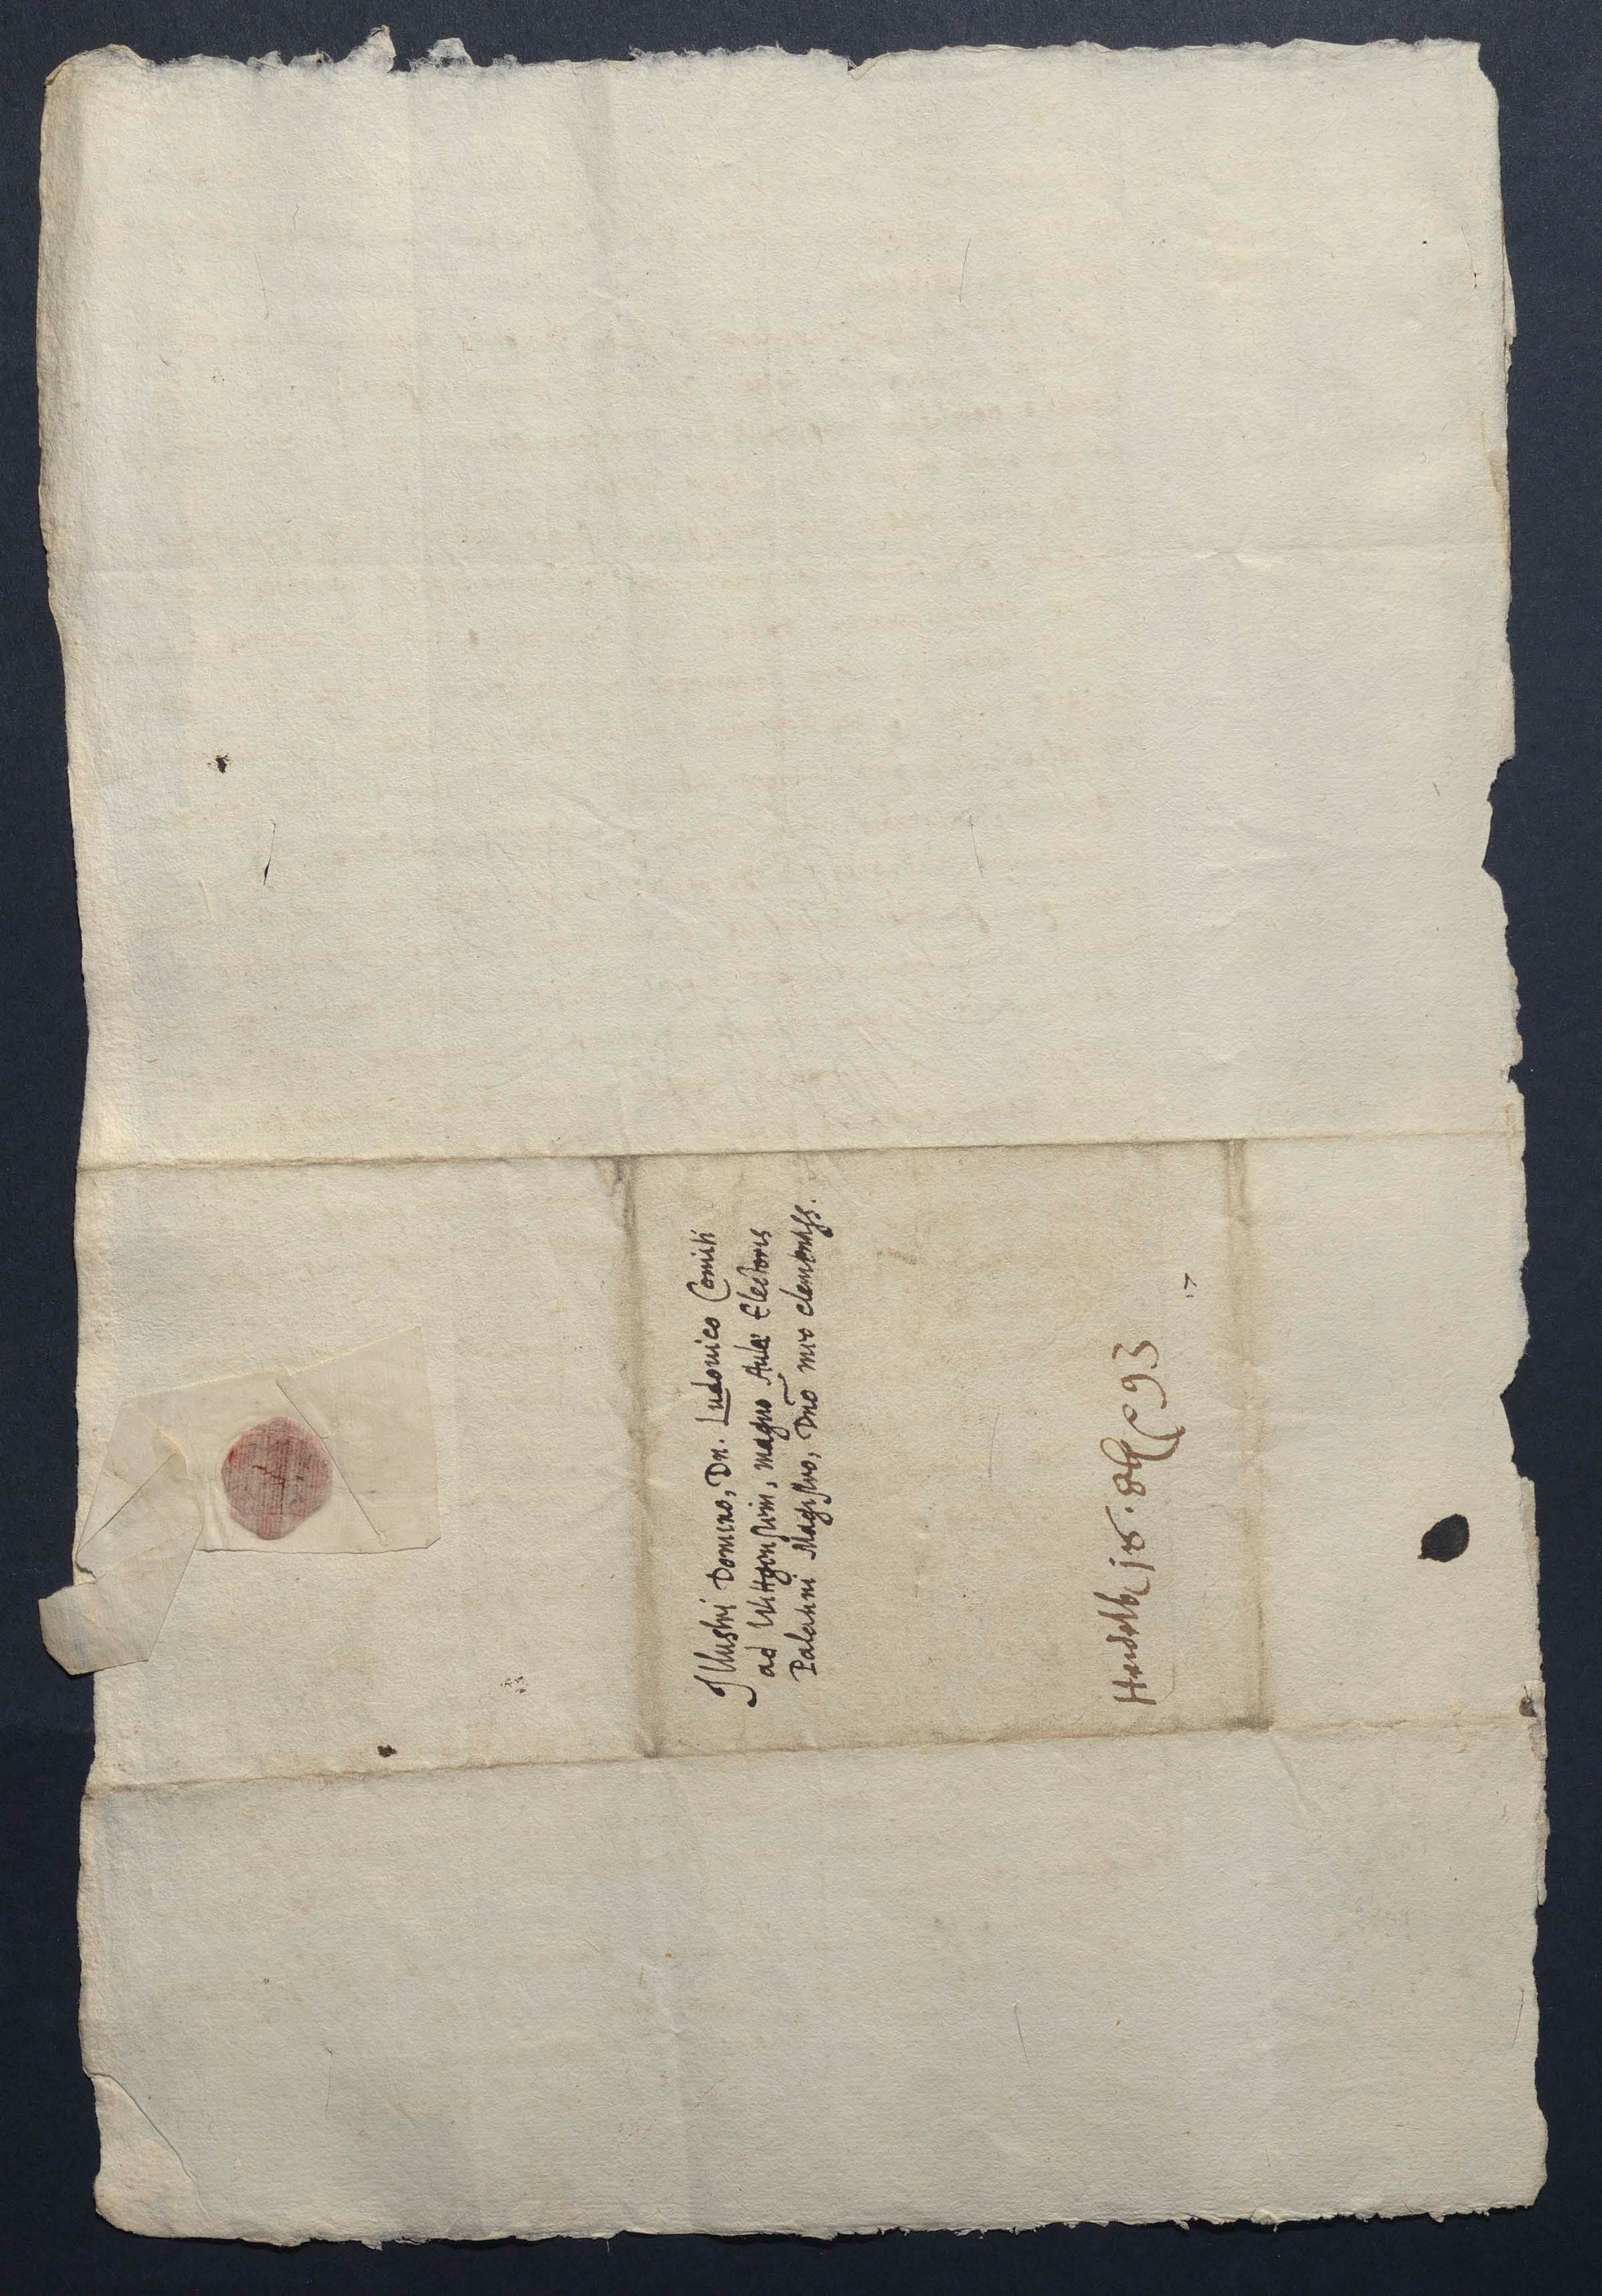 Illustri Domino, Dn. Ludouico Comiti
ad Wittgenstein, magno Aulae Electoris
Palatini Magistro, Dno meo clementiss.
Heidelb 18. 93